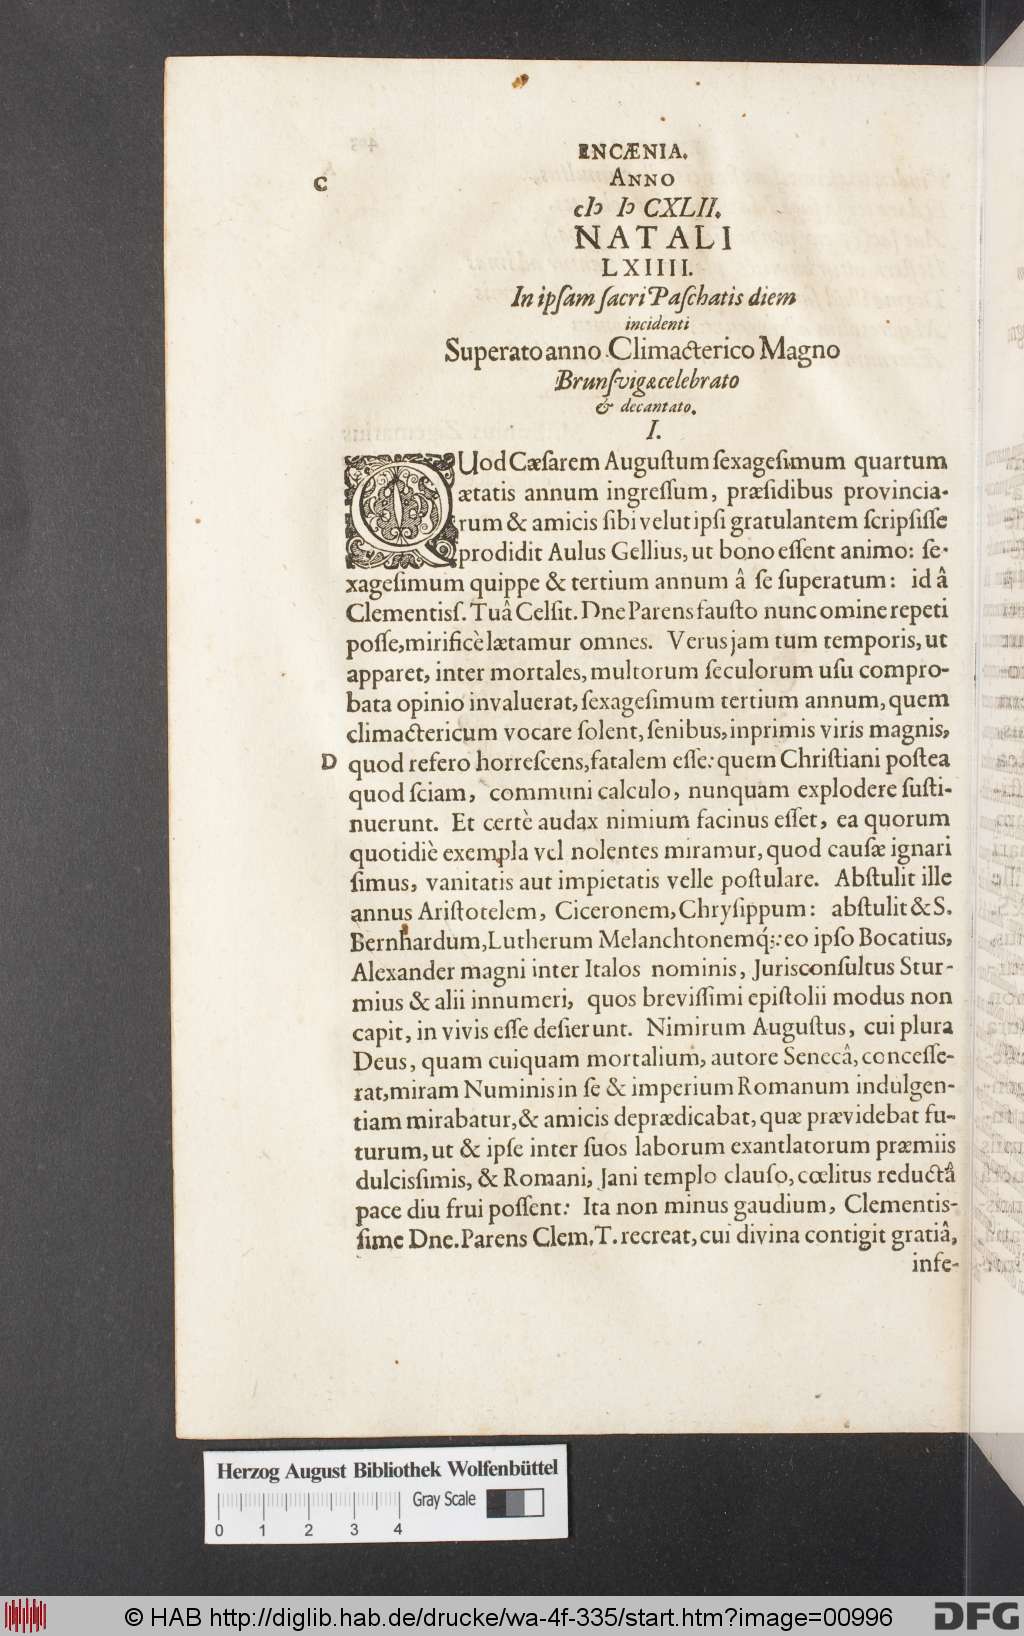 ENCÆNIA.
C
ANNO
cIↄ Iↄ CXLII.
NATALI
LXIIII.
In ipſam ſacri Paſchatis diem
incidenti
Superato anno Climacterico Magno
Brunſvigæ celebrato
& decantato.
I.
QUod Cæſarem Auguſtum ſexageſimum quartum
ætatis annum ingreſſum, præſidibus provincia-
rum & amicis ſibi velut ipſi gratulantem ſcripſiſſe
prodidit Aulus Gellius, ut bono eſſent animo: ſe-
xageſimum quippe & tertium annum â ſe ſuperatum: id â
Clementiſſ. Tuâ Celſit. Dne Parens fauſto nunc omine repeti
poſſe, mirificè lætamur omnes. Verus jam tum temporis, ut
apparet, inter mortales, multorum ſeculorum uſu compro-
bata opinio invaluerat, ſexageſimum tertium annum, quem
climactericum vocare ſolent, ſenibus, inprimis viris magnis,
D
quod refero horreſcens, fatalem eſſe: quem Chriſtiani poſtea
quod ſciam, communi calculo, nunquam explodere ſuſti-
nuerunt. Et certè audax nimium facinus eſſet, ea quorum
quotidiè exempla vel nolentes miramur, quod cauſæ ignari
ſimus, vanitatis aut impietatis velle poſtulare. Abſtulit ille
annus Ariſtotelem, Ciceronem, Chryſippum: abſtulit & S.
Bernhardum, Lutherum Melanchtonemq́;: eo ipſo Bocatius,
Alexander magni inter Italos nominis, Jurisconſultus Stur-
mius & alii innumeri, quos breviſſimi epiſtolii modus non
capit, in vivis eſſe deſierunt. Nimirum Auguſtus, cui plura
Deus, quam cuiquam mortalium, autore Senecâ, conceſſe-
rat, miram Numinis in ſe & imperium Romanum indulgen-
tiam mirabatur, & amicis deprædicabat, quæ prævidebat fu-
turum, ut & ipſe inter ſuos laborum exantlatorum præmiis
dulcisſimis, & Romani, Jani templo clauſo, cœlitus reductâ
pace diu frui poſſent: Ita non minus gaudium, Clementis-
ſime Dne. Parens Clem. T. recreat, cui divina contigit gratiâ,
inſe-
Herzog August Bibliothek Wolfenbüttel
Gray Scale
0 1 2 3 4
© HAB http://diglib.hab.de/drucke/wa-4f-335/start.htm?image=00996
DFG